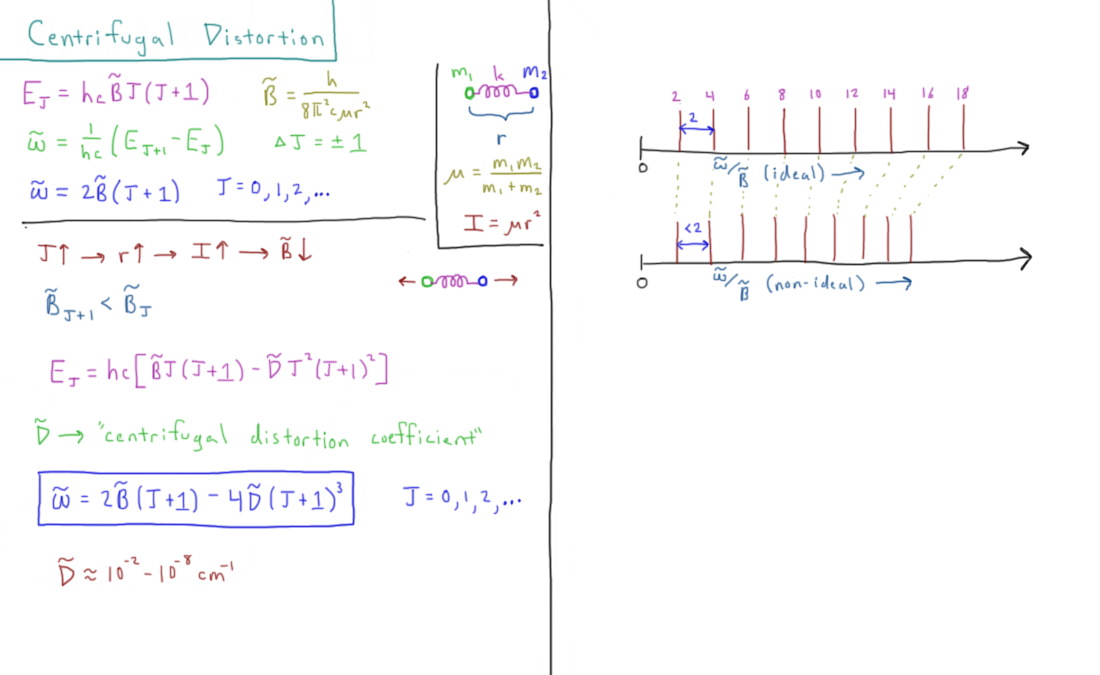 Centrifugal Distortion
E_J = hcB̃J(J+1)    B̃ = h / 8π²cμr²
ω̃ = 1/hc (E_{J+1} - E_J)    ΔJ = ±1
ω̃ = 2B̃(J+1)    J = 0,1,2,...
m₁ k m₂
r
μ = m₁m₂ / m₁+m₂
I = μr²
J↑ → r↑ → I↑ → B̃↓
B̃_{J+1} < B̃_J
E_J = hc[B̃J(J+1) - D̃J²(J+1)²]
D̃ → "centrifugal distortion coefficient"
ω̃ = 2B̃(J+1) - 4D̃(J+1)³    J = 0,1,2,...
D̃ ≈ 10⁻² - 10⁻⁸ cm⁻¹
2 4 6 8 10 12 14 16 18
2
0 ω̃/B̃ (ideal) →
<2
0 ω̃/B̃ (non-ideal) →